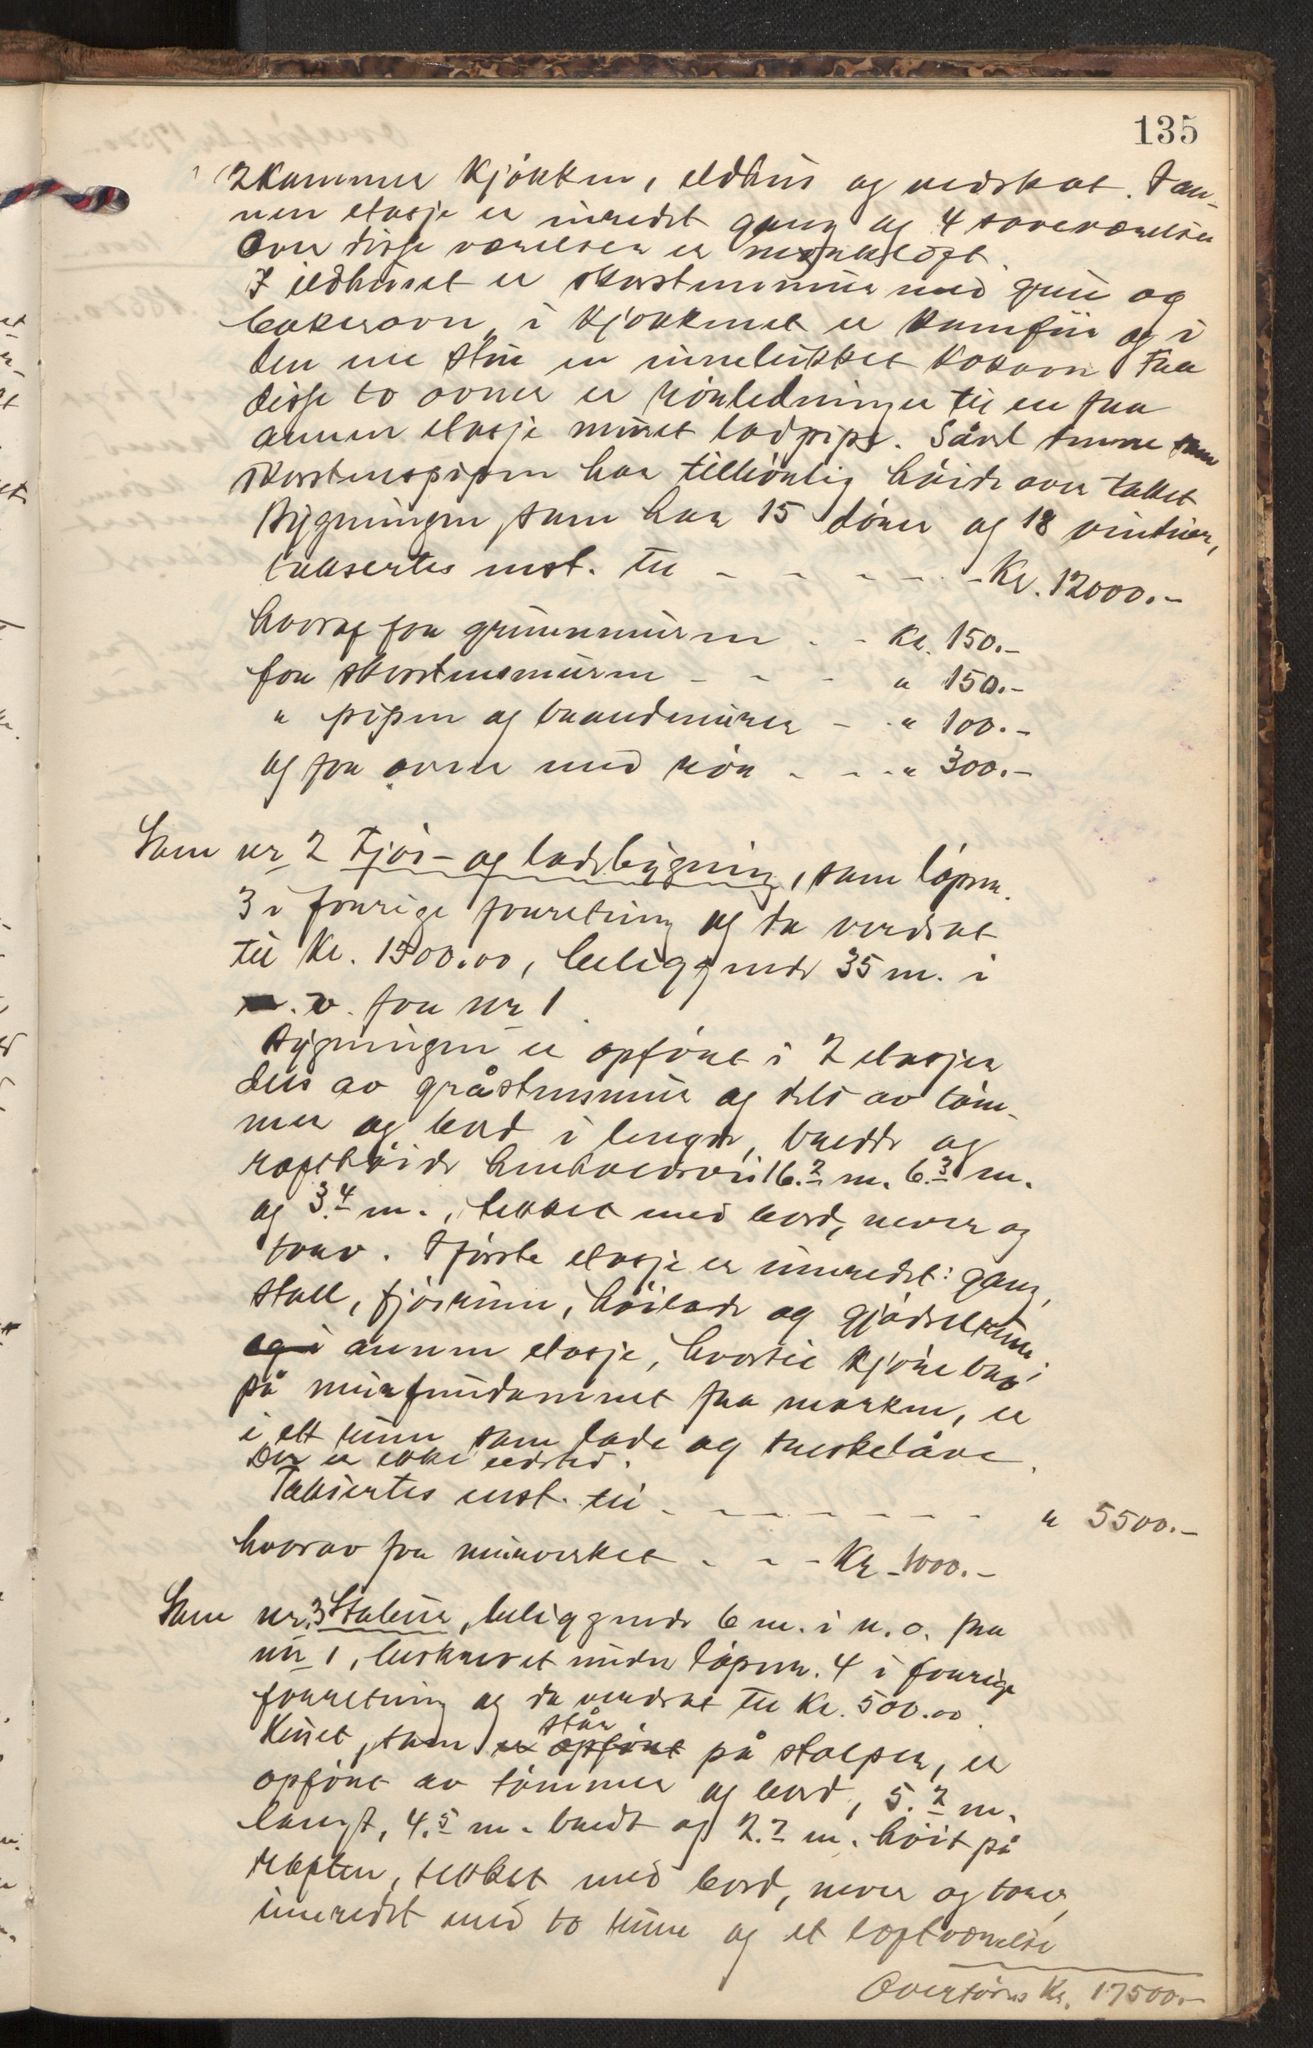 135
2 kammer kjøkken, eldhus og vedskot. I an-
nen etasje er inredet gang og 4 soveværelser
Over disse værelser er mørkeloft.
I ildhuset er skorstensmur med grue og
bakerovn, i kjøkkenet er komfur og i
den ene stue en inelukket kokovn. Fra
disse to ovner er rørledninger til en fra
annen etasje muret lodpipe. Såvel denne som
skorstenspipen har tilbørlig høide over taket
Bygningen, som har 15 dører og 18 vinduer,
taksertes enst. til - - - - - - Kr. 12000.-
hvoraf for grunnmuren - - Kr. 150.-
for skorstensmuren - - - " 150.-
" pipen og brandmurer - - " 100.-
og for ovner med rør - - - " 300.-
Som nr 2 Fjøs- og ladebygning, som løpenr.
3 i forrige forretning og da verdsat
til Kr. 1500.00, beliggende 35 m. i
v. for nr 1
Bygningen er opført i 2 etasjer
dels av gråstensmur og dels av tøm-
mer og bord i lengde, bredde og
røsthøide henholdsvis 16.2 m. 6.3 m.
og 3.4 m., tekket med bord, never og
torv. I første etasje er inredet: gang,
stall, fjøsrum, høilade og gjødselrum,
og i annen etasje, hvortil kjørebro
på murfundament fra marken, er
i ett rum som lade og treskelåve.
Der er ikke ildsted.
Taksertes enst. til - - - - - - - " 5500.-
hvorav for murverket - - - Kr 1000.-
Som nr. 3 Stabur, beliggende 6 m. i n.o. fra
nr 1, beskrevet under løpenr. 4 i forrige
forretning og da verdsat til Kr. 500.00.
Huset, som er opført står på stolper, er
opført av tømmer og bord, 5.2 m.
langt, 4.5 m. bredt og 2.7 m. høit på
røsten, tekket med bord, never og torv,
inredet med to rum og et loftværelse
Overføres Kr. 17500.-